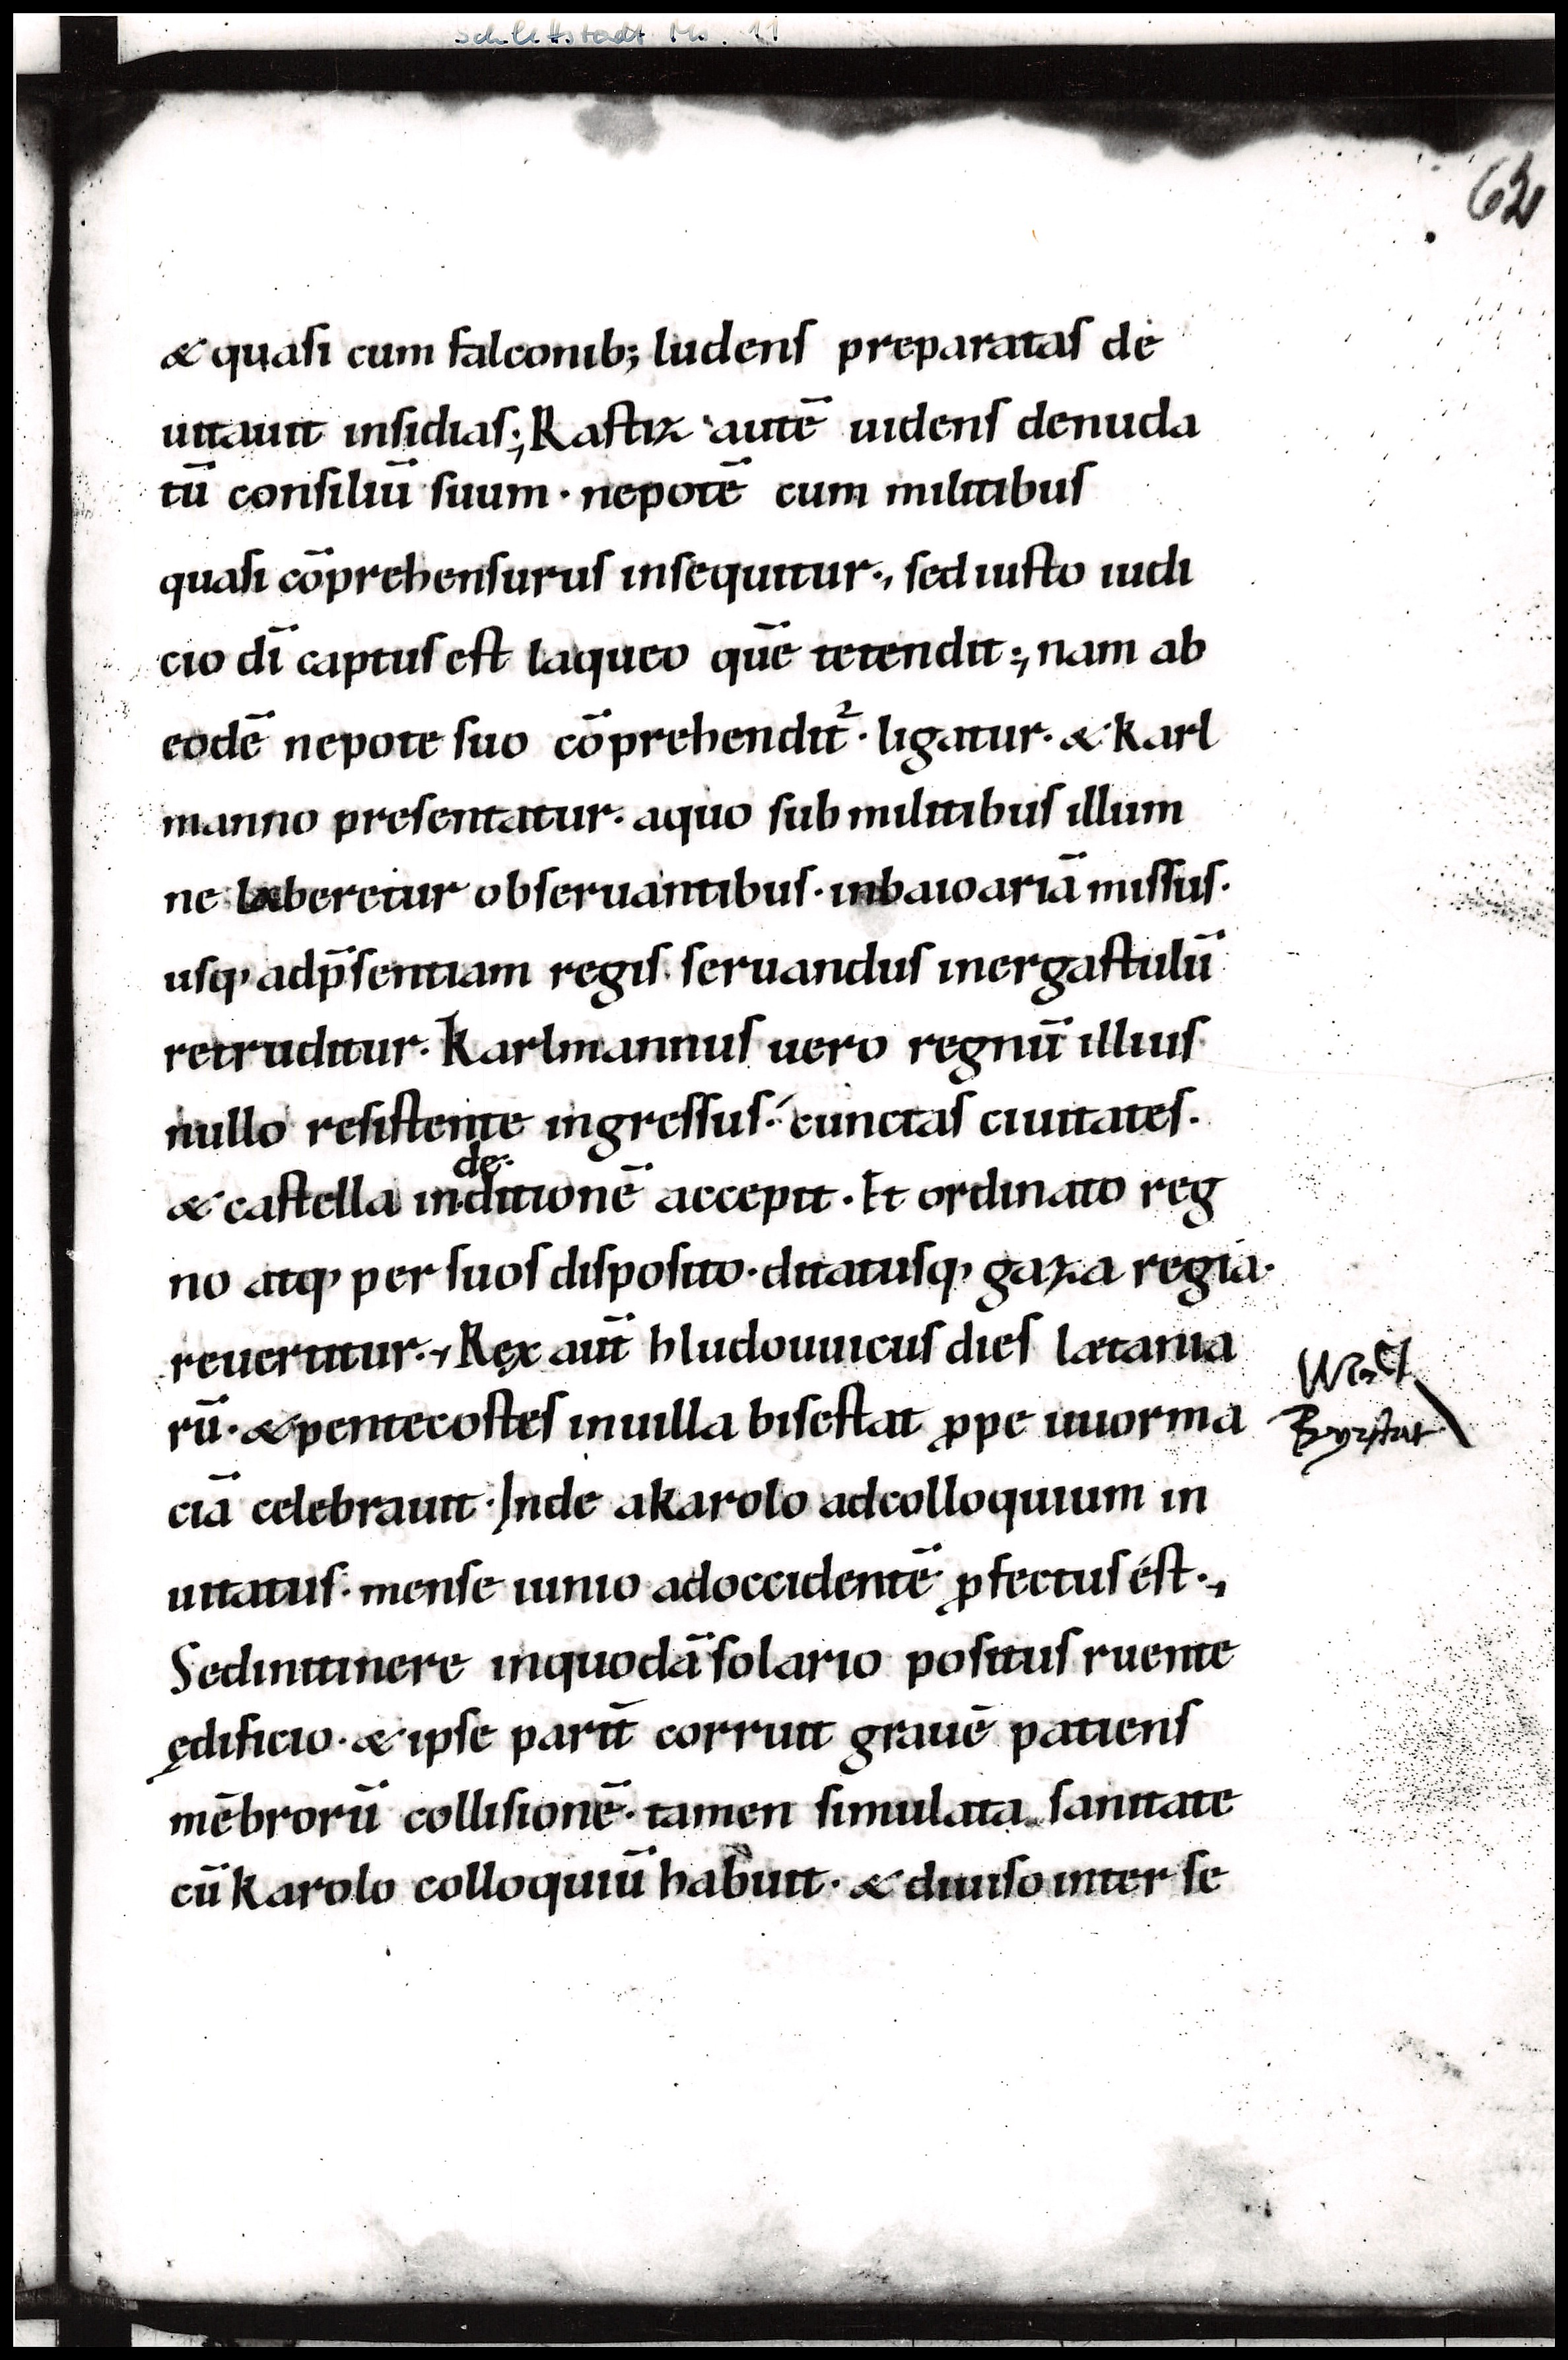 Schlettstadt Ms. 11
62
& quasi cum falconib; ludens preparatas de
uitauit insidias; Rastiz autē uidens denuda
tū consiliū suum · nepotē cum militibus
quasi cōprehensurus insequitur·, sed iusto iudi
cio dī captus est laqueo quē tetendit:, nam ab
eodē nepote suo cōprehendit᷑ · ligatur · & karl
manno presentatur · aquo sub militibus illum
ne laberetur obseruantibus · inbaioariā missus ·
usq; adp̄sentiam regis · seruandus inergastulū
retruditur · Karlmannus uero regnū illius
nullo resistente ingressus · cunctas ciuitates ·
de
& castella inditionē accepit · Et ordinato reg
no atq; per suos disposito · ditatusq; gaza regia ·
reuertitur ·, Rex aut̄ hludouuicus dies lætania
rū · & pentecostes inuilla bisestat ꝓpe uuorma
ciā celebrauit · Inde akarolo adcolloquium in
uitatus · mense iunio adoccidentē ꝓfectus ést ·,
Sedinitinere inquodā solario positus ruente
ędificio · & ipse parit̄ corruit grauē patiens
mēbrorū collisionē · tamen simulata sanitate
cū karolo colloquiū habuit · & diuiso inter se